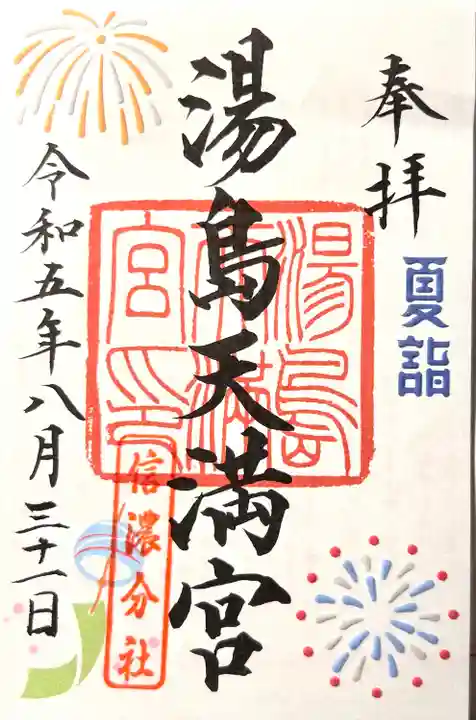 奉拝
夏詣
湯島天満宮
湯島天満宮印
信濃分社
令和五年八月三十一日